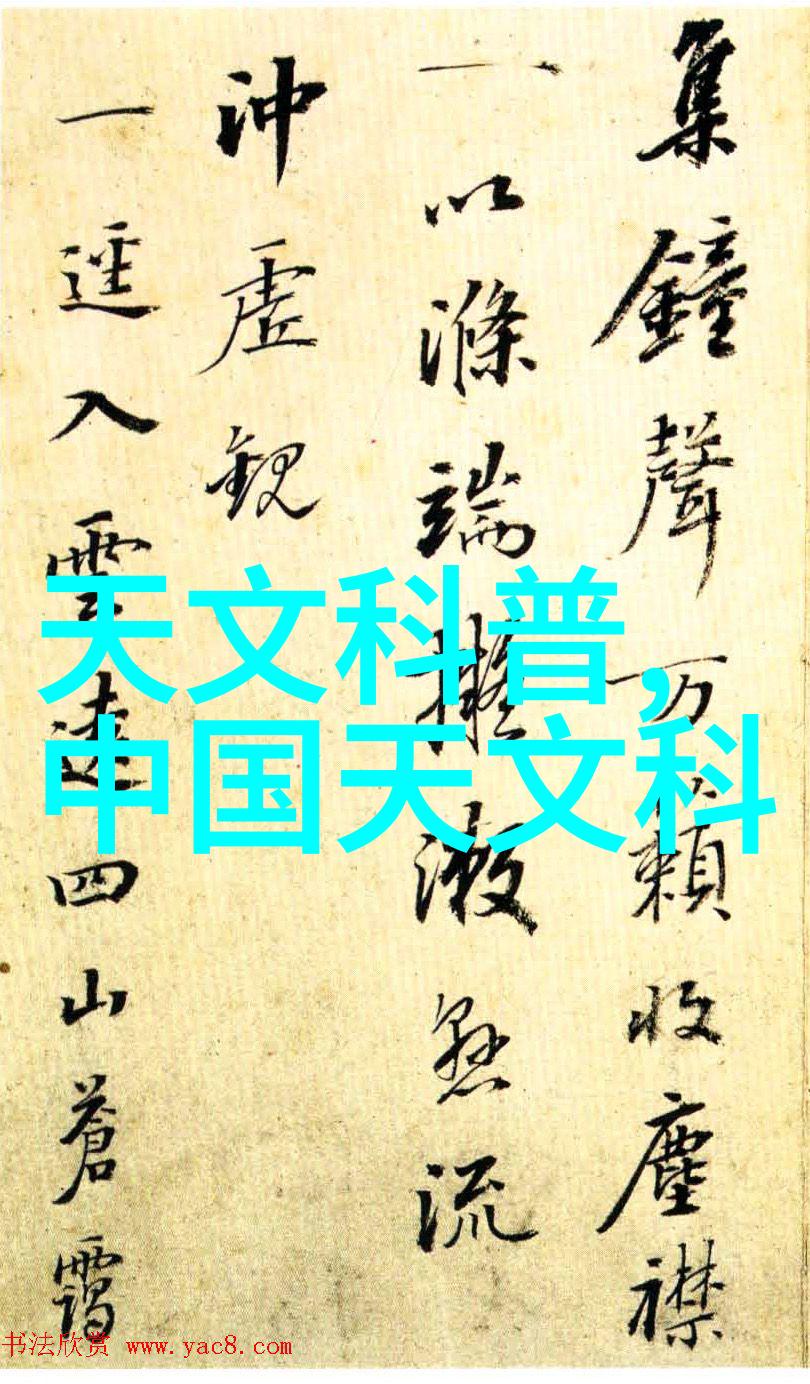 集鐘聲万籟收塵襟
一以滌端擬漱悬流
沖虛觀
一逕入雲遠四山蒼靄
天文科普，
中国天文科
书法欣赏 www.yac8.com